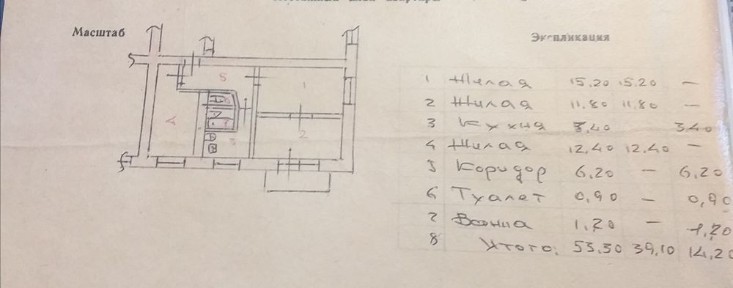 Масштаб
Экспликация
1 Жилая 15,20 15,20 —
2 Жилая 11,80 11,80 —
3 Кухня 3,40
4 Жилая 12,40 12,40 —
5 Коридор 6,20 — 6,20
6 Туалет 0,90 — 0,90
7 Ванна 1,20 — 1,20
8 Итого: 53,30 39,10 14,20
5
1
4
2
3